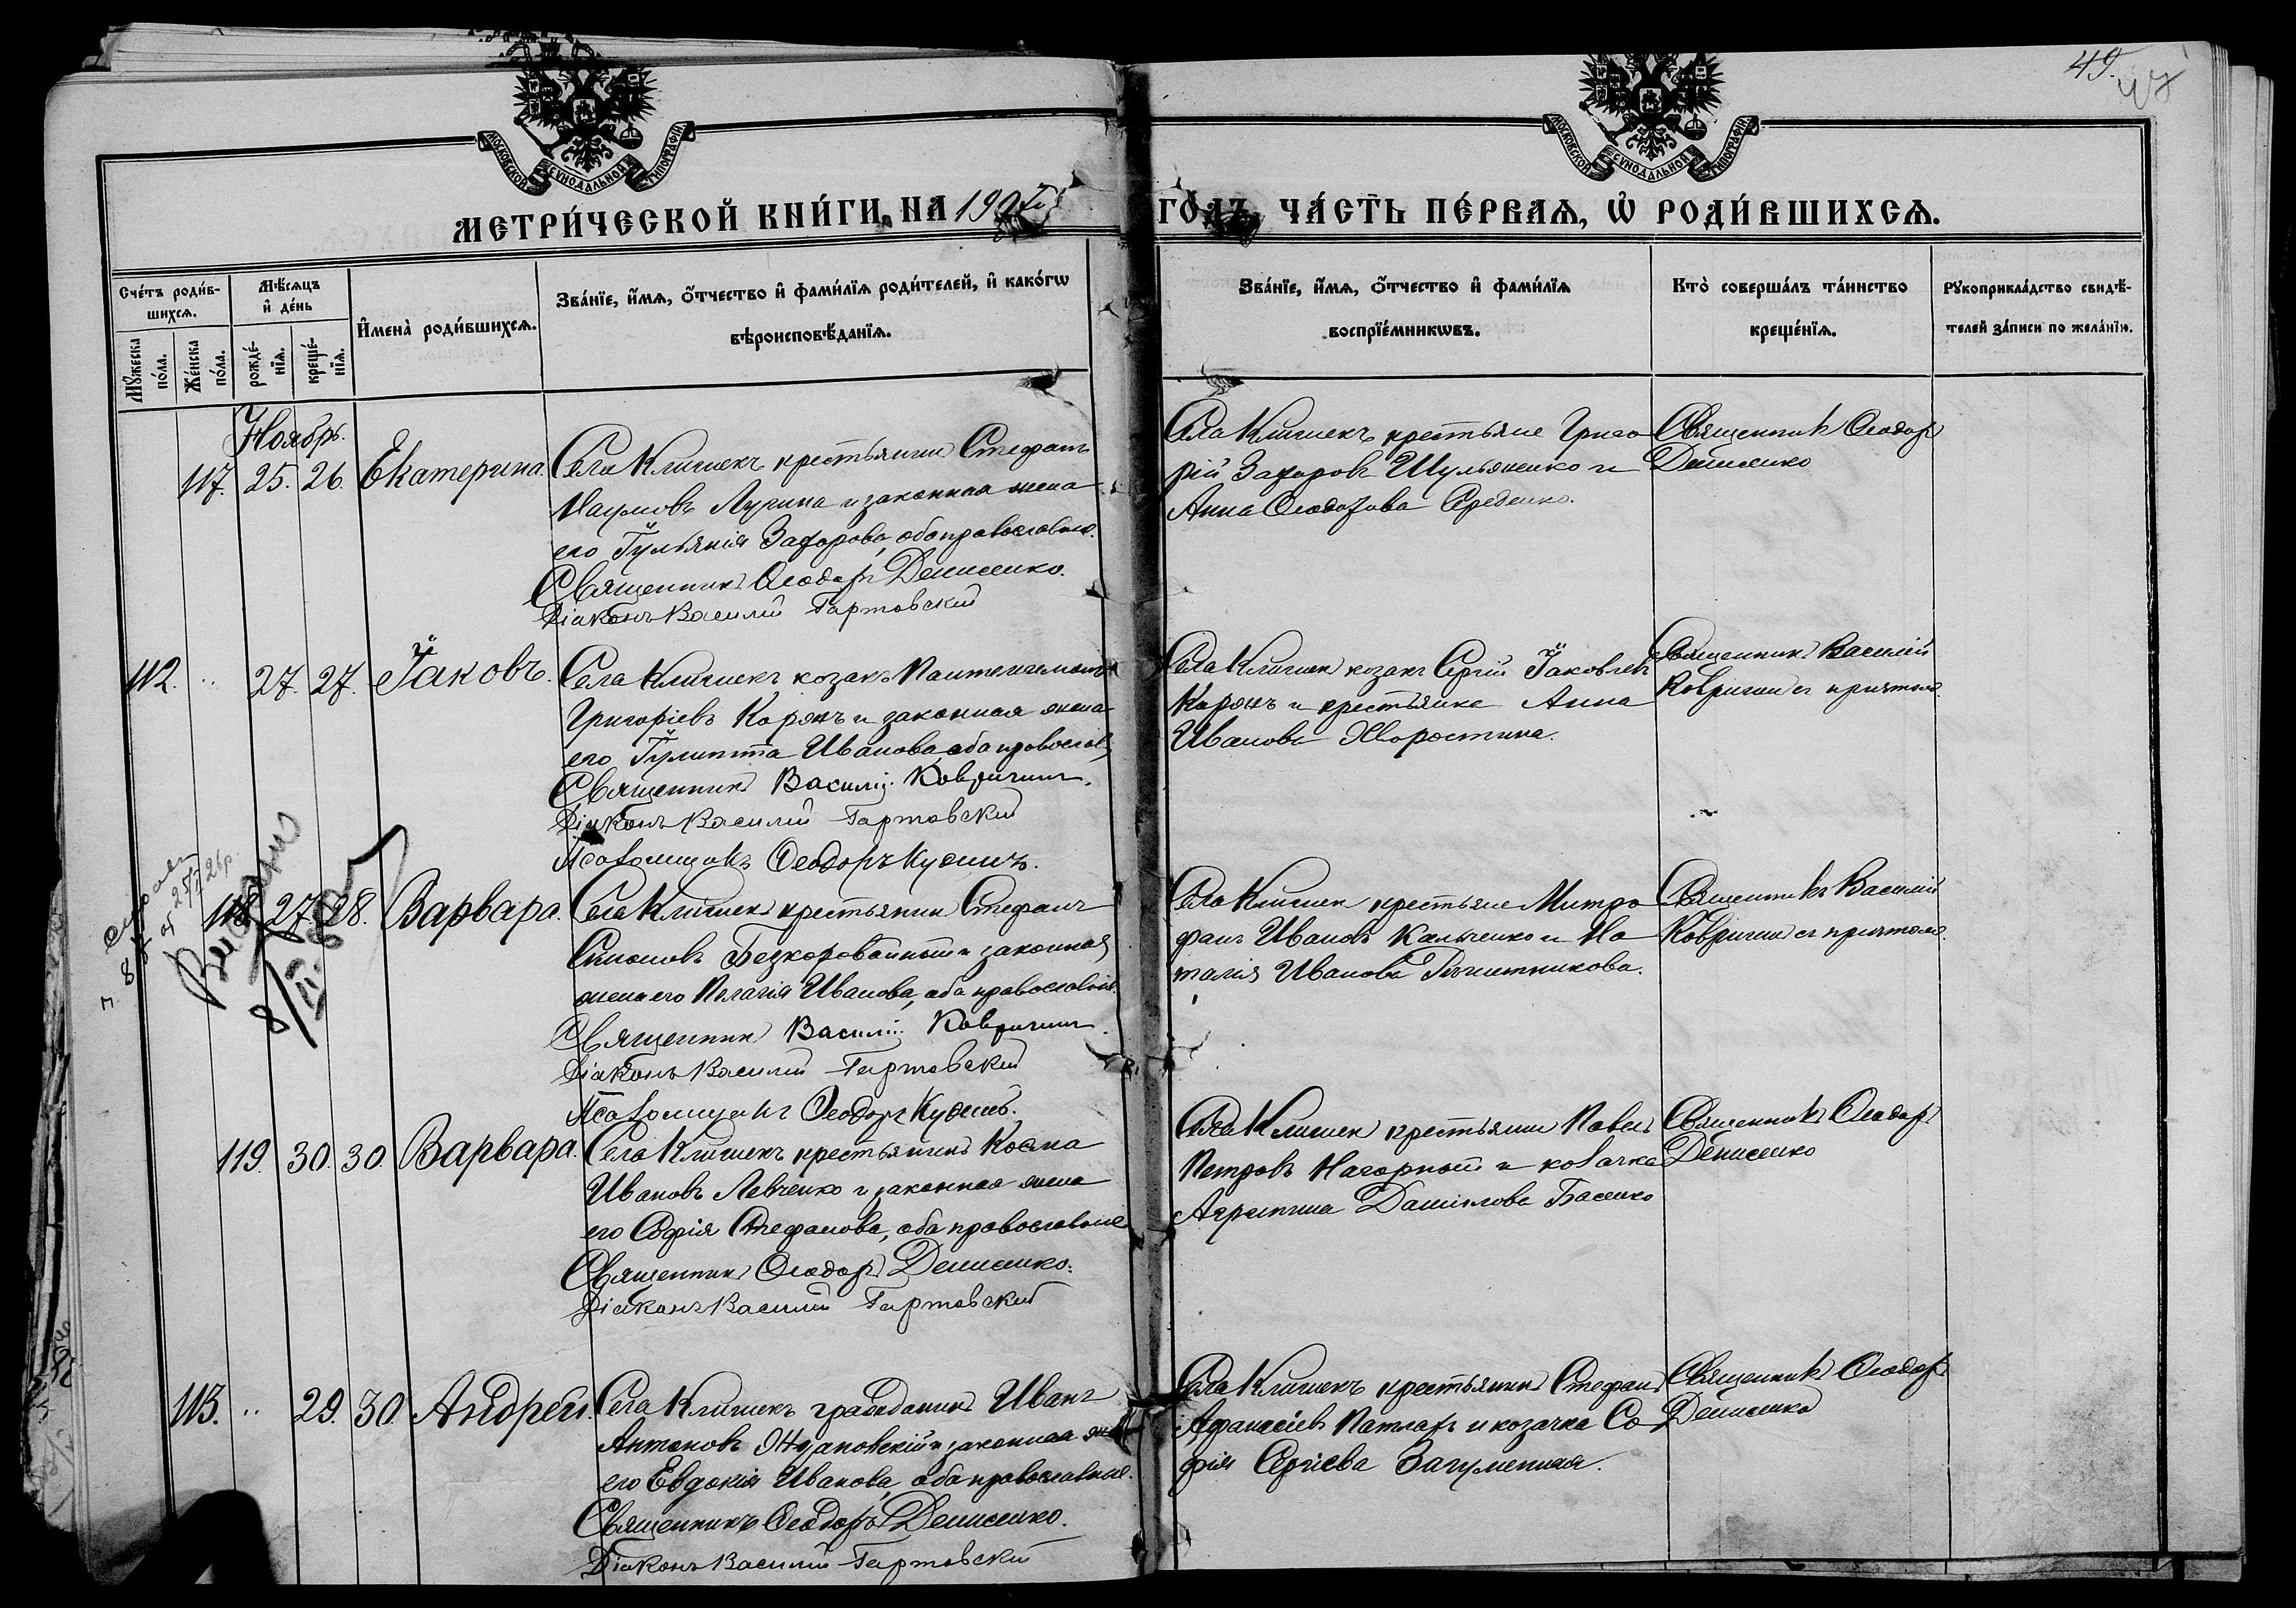 49.
МОСКОВСКОЙ СѴНОДАЛЬНОЙ ТИПОГРАФІИ
МОСКОВСКОЙ СѴНОДАЛЬНОЙ ТИПОГРАФІИ
МЕТРИ́ЧЕСКОЙ КНИ́ГИ, НА 190
ГО́ДЪ, ЧА́СТЬ ПЕ́РВАѦ, Ѡ҆ РОДИ́ВШИХСѦ.
Сче́тъ роди́в-
шихсѧ.
Мꙋ́жеска по́ла.
Же́нска по́ла.
Мѣ́сѧцъ
и҆ де́нь
рожде́-
нїѧ.
креще́-
нїѧ.
И҆мена̀ роди́вшихсѧ.
Зва́нїе, и҆́мѧ, ѻ҆́тчество и҆ фами́лїѧ роди́телей, и҆ како́гѡ
вѣроисповѣ́данїѧ.
Зва́нїе, и҆́мѧ, ѻ҆́тчество и҆ фами́лїѧ
воспрїе́мникѡвъ.
Кто̀ соверша́лъ та́инство
креще́нїѧ.
Рꙋкоприкла́дство свидѣ́-
телей за́писи по жела́нїю.
Ноябрь.
117. 25. 26. Екатерина.
Села Клишекъ крестьянин Стефанъ
Наумовъ Лучина и законная жена
его Іульянія Захорова, оба православные.
Священникъ Ѳеодоръ Денисенко.
Діаконъ Василій Гартовский
Села Клишекъ крестьяне Григо
рій Захоровъ Шульженко и
Анна Ѳеодорова Середенко.
Священникъ Ѳеодоръ
Денисенко
112. 27. 27. Іаковъ.
Села Клишекъ козакъ Пантелеимонъ
Григоріевъ Корянъ и законная жена
его Іулитта Иванова, оба православ
Священникъ Василій Ковригин.
Діаконъ Василий Гартовский
Псаломщикъ Ѳеодоръ
Села Клишек козакъ Сергій Іаковлевъ
Корянъ и крестьянка Анна
Иванова Хворостина.
Священникъ Василій
Ковригин съ причтомъ.
118. 27. 28. Варвара.
8/
Села Клишек крестьянин Стефанъ
Симоновъ Безкоровайный и законная
жена его Пелагія Иванова, оба православные.
Священник Василій Ковригин.
Діаконъ Василий Гартовский
Псаломщикъ Ѳеодоръ
Села Клишек крестьяне Митро
фанъ Ивановъ Кальченко и На
талія Иванова
Священникъ Василий
Ковригин съ причтомъ.
119. 30. 30. Варвара.
Села Клишекъ крестьянинъ Косма
Ивановъ Левченко и законная жена
его Софія Стефанова, оба православные
Священникъ Ѳеодоръ Денисенко.
Діаконъ Василий Гартовский
Села Клишек крестьянин Павелъ
Петровъ Нагорный и козачка
Агрипина Даниилова Басенко
Священникъ Ѳеодоръ
Денисенко
113. 29. 30. Андрей.
Села Клишекъ гражданинъ Иванъ
Антоновъ и законная жена
его Евдокія Иванова, оба православные.
Священникъ Ѳеодоръ Денисенко.
Діаконъ Василий Гартовский
Села Клишекъ крестьянинъ Стефанъ
Афанасіевъ Патларъ и козачка Со
фія Сергіева Загуменная.
Священникъ Ѳеодоръ
Денисенко